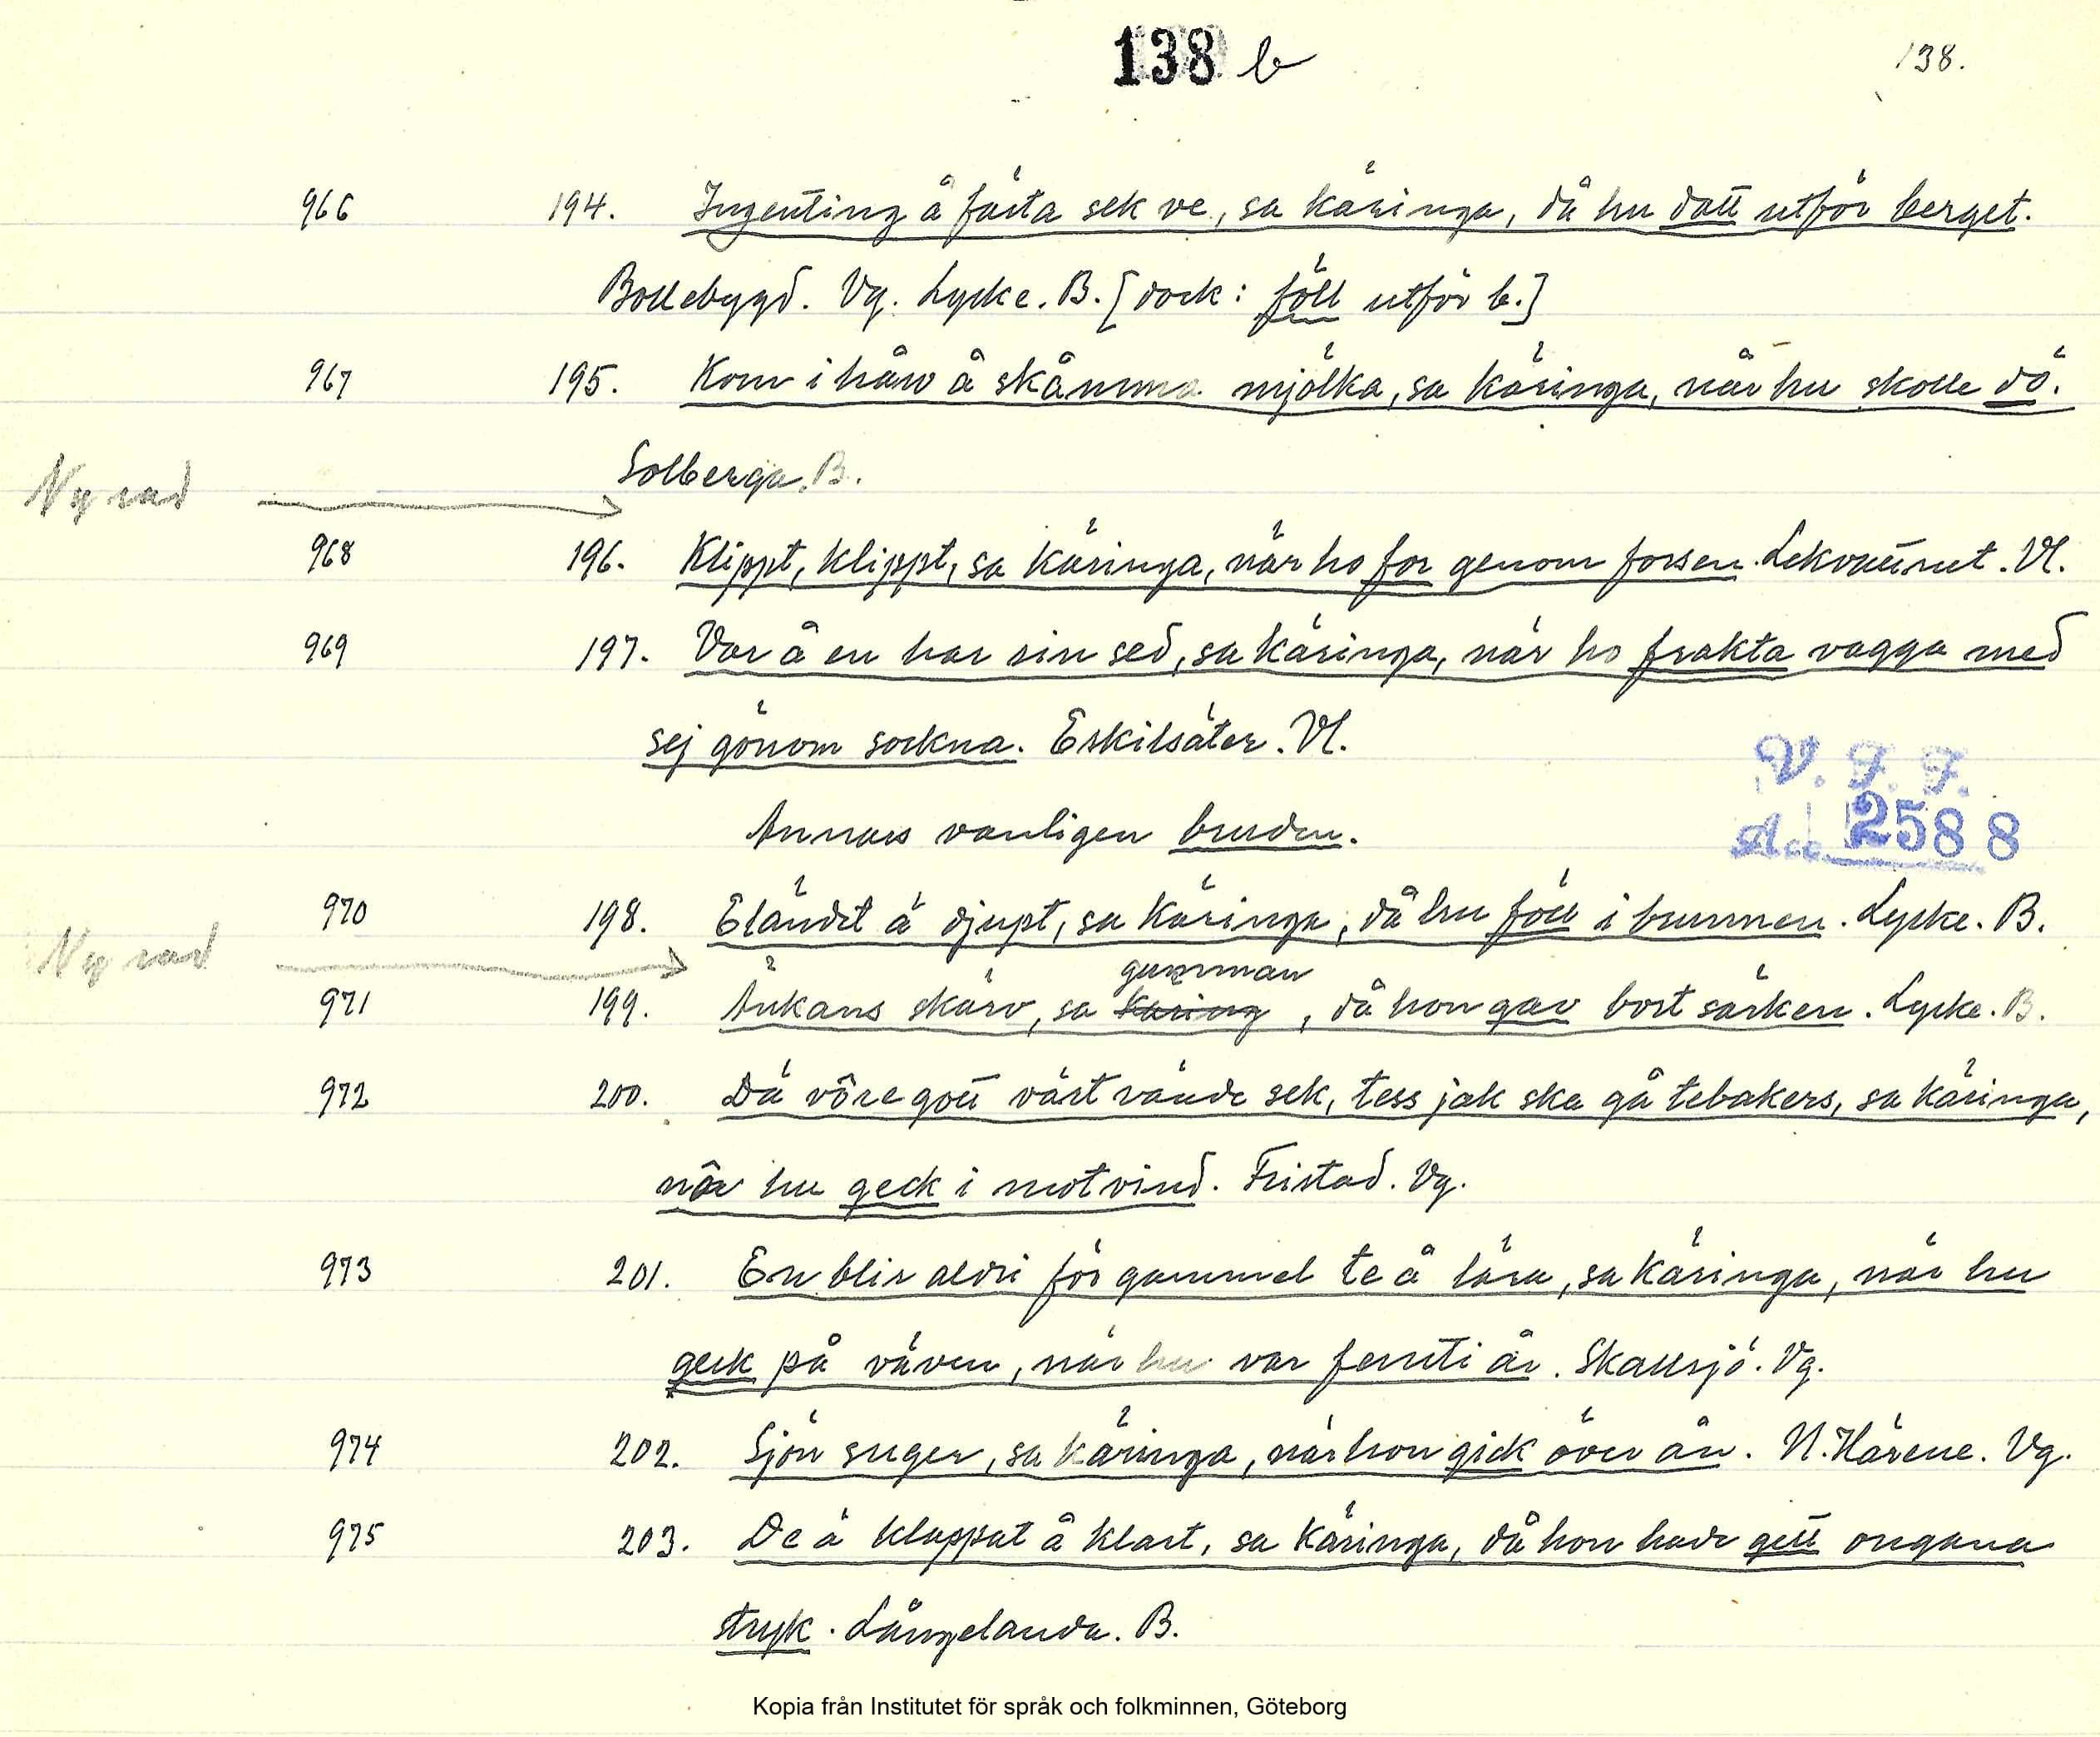 138 b
138.
966 194. Ingenting å fästa sek ve, sa käringa, då hu datt utför berget.
Bollebygd. Vg. Lycke. B. [dock: föll utför b.]
967 195. Kom i håw å skåmma mjölka, sa käringa, när hu skolle dö.
Solberga. B.
Ny rad
968 196. Klippt, klippt, sa käringa, när ho for genom forsen. Lekvattnet. Vl.
969 197. Var å en har sin sed, sa käringa, när ho frakta vagga med
sej gönom sockna. Eskilsäter. Vl.
V. F. F.
Annars vanligen bruden.
Acc. 2588
970 198. Eländet ä djupt, sa käringa, då hu föll i brunnen. Lycke. B.
Ny rad
gumman
971 199. Änkans skärv, sa käring, då hon gav bort särken. Lycke. B.
972 200. Dä vôre gott värt vände sek, tess jak ska gå tebakers, sa käringa,
nôr hu geck i motvind. Fristad. Vg.
973 201. En blir aldri för gammel te å lära, sa käringa, når hu
geck på väven, når hu var femti år. Skallsjö. Vg.
974 202. Sjön suger, sa käringa, när hon gick över ån. N. Härene. Vg.
975 203. De ä klappat å klart, sa käringa, då hon hade gett ongana
stryk. Långelanda. B.
Kopia från Institutet för språk och folkminnen, Göteborg